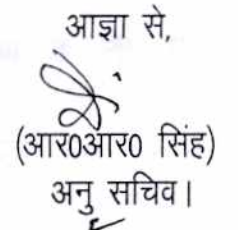 आज्ञा से,
(आर0आर0 सिंह)
अनु सचिव।